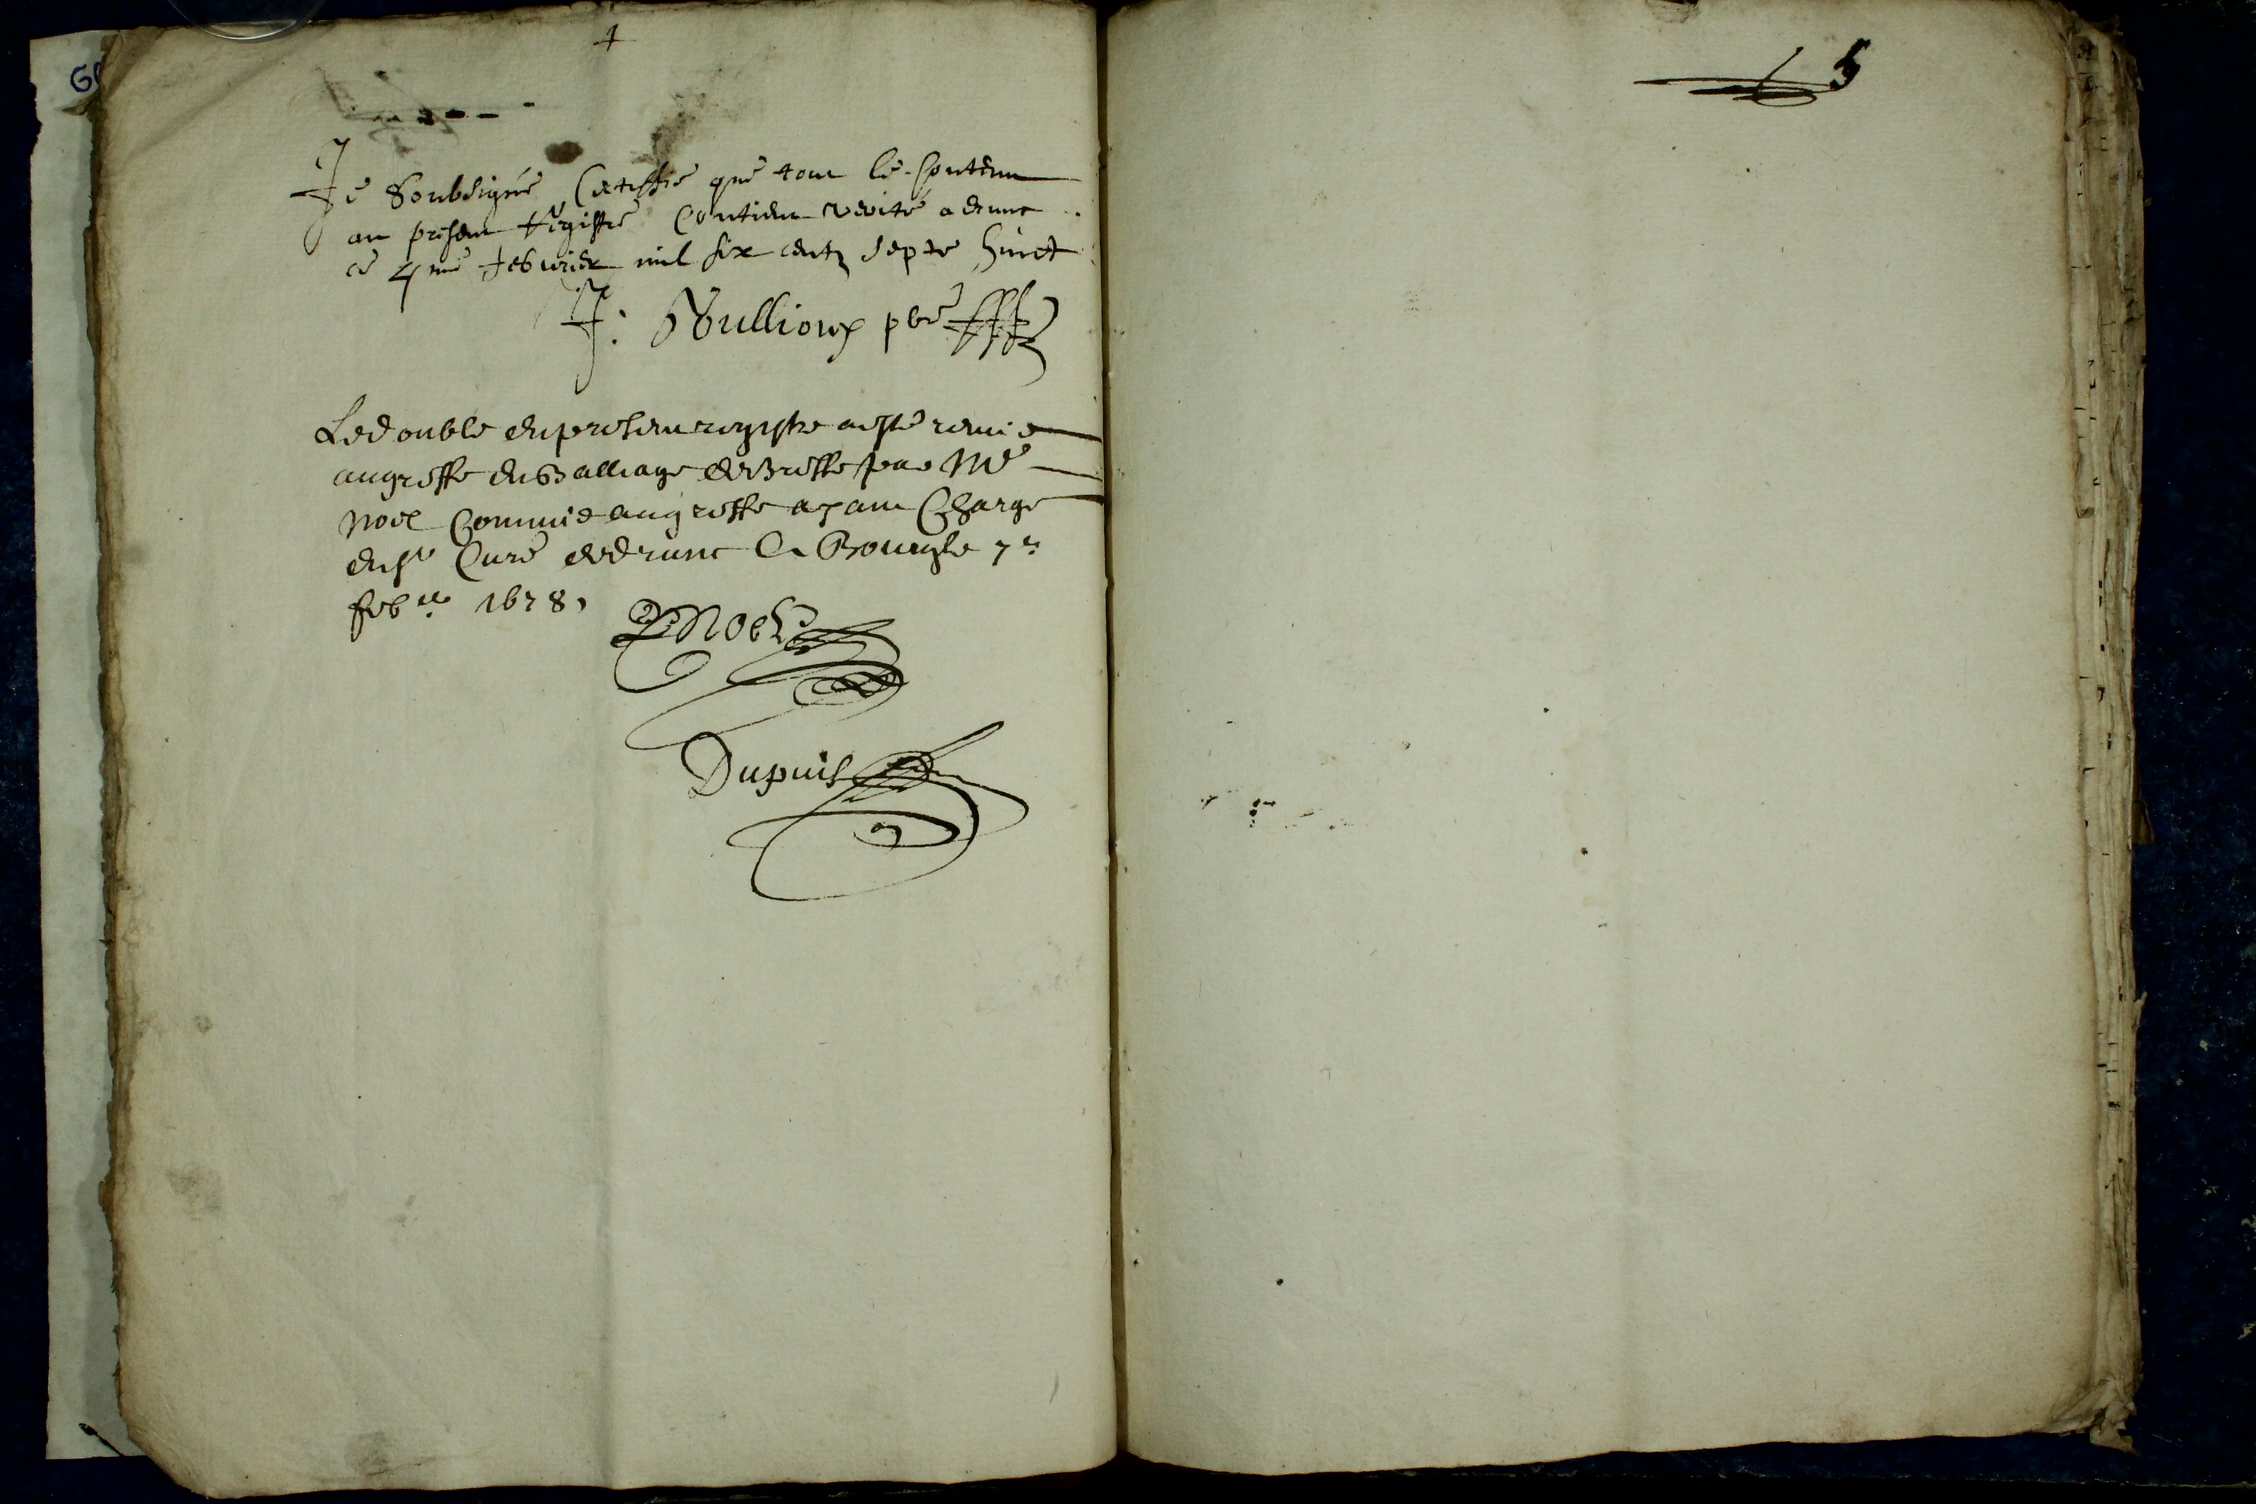 Je Soubsigné Certiffie que tout le Contenu
au present Registre Contient verité a drunc
ce 4me febvrier mil six centz septe huict
J: Vullioux pbre
Le double du present registre a esté remis
au greffe du Balliage de Bresse par Me
Noel Commis au greffe ayant Charge
du Sr Curé de drunc A Bourg le 7e
feber 1678.
Noel
Dupuis
5